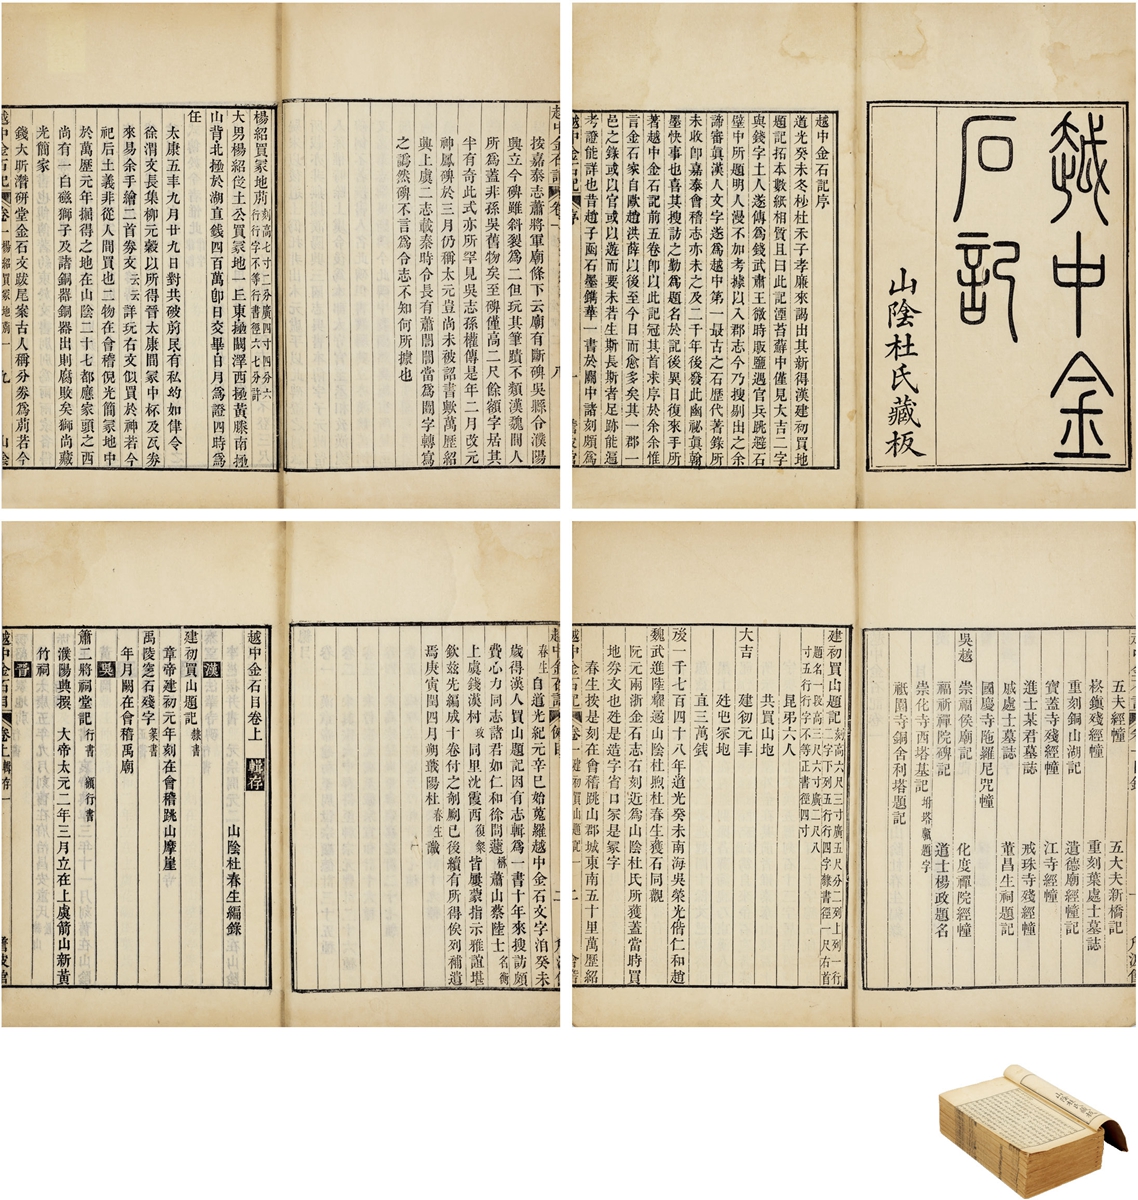 越中金
石記
山陰杜氏藏板
越中金石記序
道光癸未冬杪杜禾子孝廉來謁出其新得漢建初買地
題記拓本數紙相質且曰此記湮苔蘚中僅見大吉二字
與錢字土人遂傳為錢武肅王微時販鹽遇官兵跳避石
壁中所題明人漫不加考據以入郡志今乃搜剔出之余
諦審真漢人文字遂為越中第一最古之石歷代著錄所
未收卽嘉泰會稽志亦未之及二千年後發此幽祕真翰
墨快事也喜其搜訪之勤為題名於記後異日復來手所
著越中金石記前五卷卽以此記冠其首求序於余余惟
言金石家自歐趙洪薛以後至今日而愈多矣其一郡一
邑之錄或以官或以遊而要未若生斯長斯者足跡能遍
考證能詳也昔趙子函石墨鐫華一書於關中諸刻頗為
越中金石記 卷一 八
按嘉泰志蕭將軍廟條下云廟有斷碑吳縣令濮陽
興立今碑雖斜裂為二但玩其筆蹟不類漢魏間人
所為蓋非孫吳舊物矣至碑僅高二尺餘額字居其
半有奇此式亦所罕見吳志孫權傳是年二月改元
神鳳碑於三月仍稱太元豈尚未被詔書歟萬歷紹
興上虞二志載秦時令長有蕭闓闓當為閭字轉寫
之譌然碑不言為令志不知何所據也
楊紹買冢地莂 刻高七寸二分廣四寸四分六行行字不等行書徑六七分計
大男楊紹從土公買冢地一丘東極闞澤西極黃滕南極
山背北極於湖直錢四百萬卽日交畢日月為證四時為
任
太康五年九月廿九日對共破莂民有私約如律令
徐渭文長集柳元穀以所得晉太康間冢中杯及瓦券
來易余手繪二首券文云云詳玩右文似買於神若今
祀后土義非從人間買也二物在會稽倪光簡冢地中
於萬歷元年掘得之地在山陰二十七都應家頭之西
尚有一白磁獅子及諸銅器銅器出則腐敗矣獅尚藏
光簡家
錢大昕潛研堂金石文跋尾案古人稱分券為莂若今
越中金石記 卷一 楊紹買冢地莂 一 九 山陰
五夫經幢 五大夫新橋記
崧鎮殘經幢 重刻葉處士墓誌
重刻銅山湖記 遺德廟經幢記
寶蓋寺殘經幢 江寺經幢
進士某君墓誌 戒珠寺殘經幢
戚處士墓誌 董昌生祠題記
國慶寺陁羅尼咒幢
吳越
崇福侯廟記 化度禪院經幢
福祈禪院碑記 道士楊政題名
崇化寺西塔基記 坿塔甎題字
祇園寺銅舍利塔題記
建初買山題記 刻高六尺三寸廣五尺分二列上列一行題名一段高三尺六寸廣二尺八
寸五行行字不等正書徑四寸
昆弟六人
共買山地
建初元年
造此冢地
直三萬錢
大吉
後一千七百四十八年道光癸未南海吳榮光偕仁和趙
魏武進陸耀遹山陰杜煦杜春生獲石同觀
阮元兩浙金石志右刻近為山陰杜氏所獲蓋當時買
地券文也兠是造字省口冢是冢字
春生按是刻在會稽跳山郡城東南五十里萬歷紹
春生自道光紀元辛巳始蒐羅越中金石文字洎癸未
歲得漢人買山題記因有志輯為一書十年來搜訪頗
費心力同志諸君如仁和徐問蘧楙蕭山蔡陸士名衡
上虞錢漢村玫同里沈霞西復粲皆屢蒙指示雅誼堪
欽兹先編成十卷付之剞劂已後續有所得俟列補遺
焉庚寅閏四月朔叢陽杜春生識
越中金石目卷上
山陰杜春生編錄
輯存
漢
建初買山題記 隸書
章帝建初元年刻在會稽跳山摩崖
禹陵窆石殘字 篆書
年月闕在會稽禹廟
吳
蕭二將祠堂記 行書 額行書
濮陽興撰 大帝太元二年三月立在上虞箭山新黃
竹祠
晉
越中金石目 卷上輯存 一